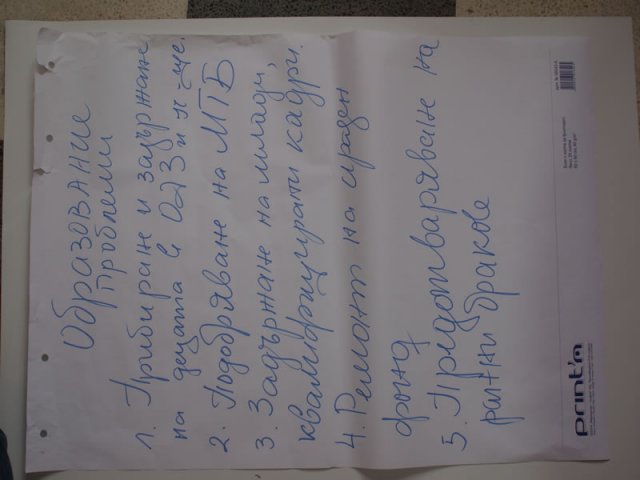 Образование
проблеми
1. Прибиране и задържане
на децата в ОДЗ и у-ще.
2. Подобряване на МТБ
3. Задържане на млади,
квалифицирани кадри.
4. Ремонт на сграден
фонд
5. Предотваряване на
ранни бракове
Print'm